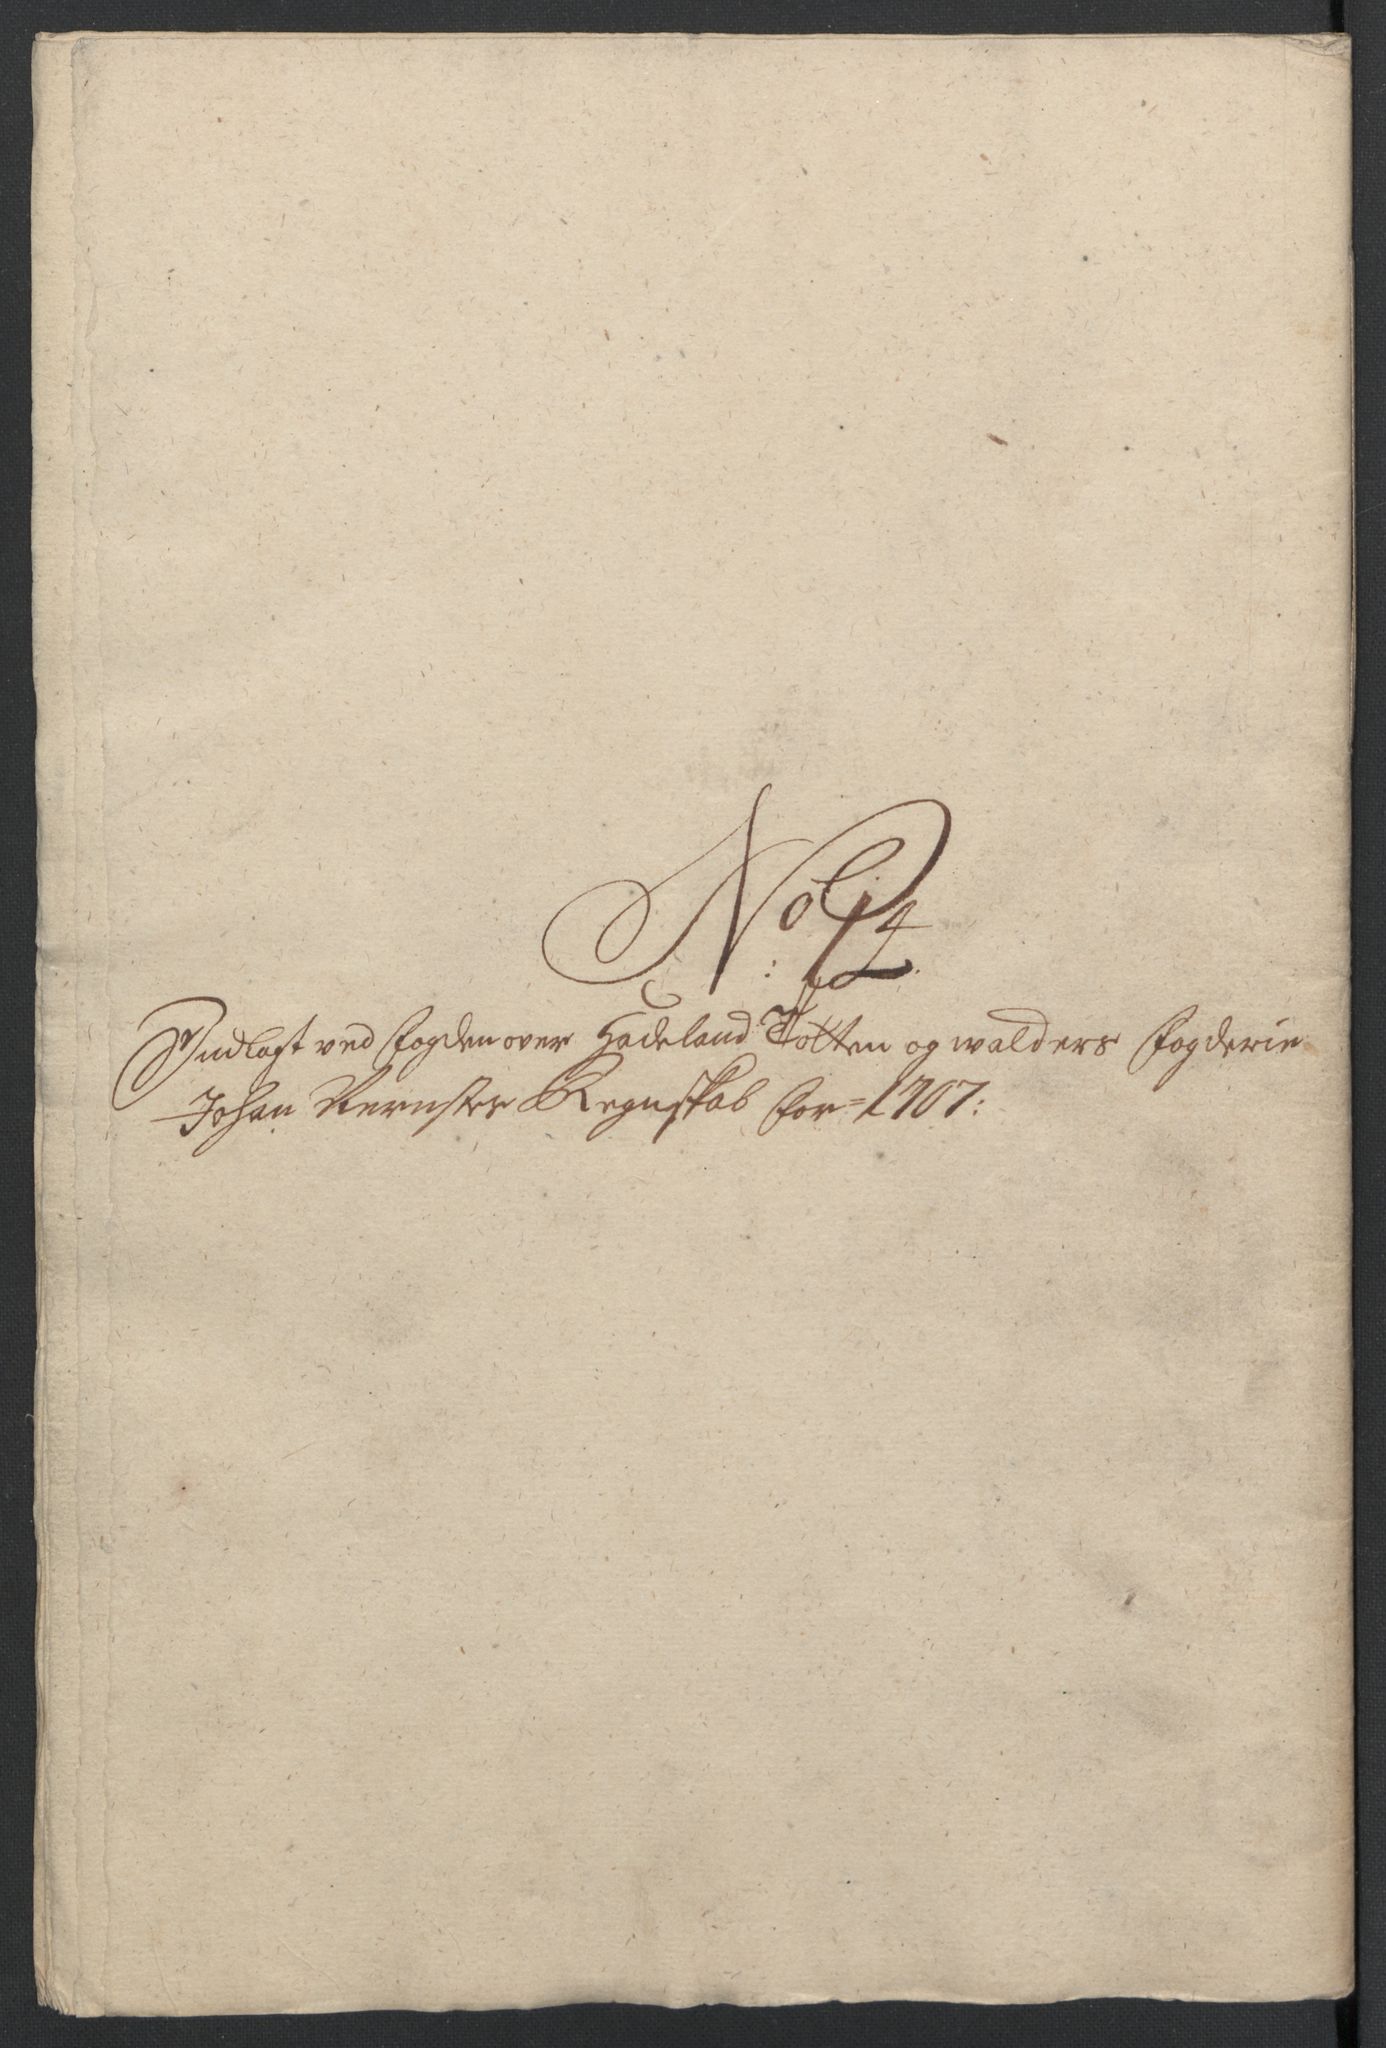 No: 12
Indlagt ved fogden over Hadeland Totten og walders fogderie
Johan Regnskab for = 1707: